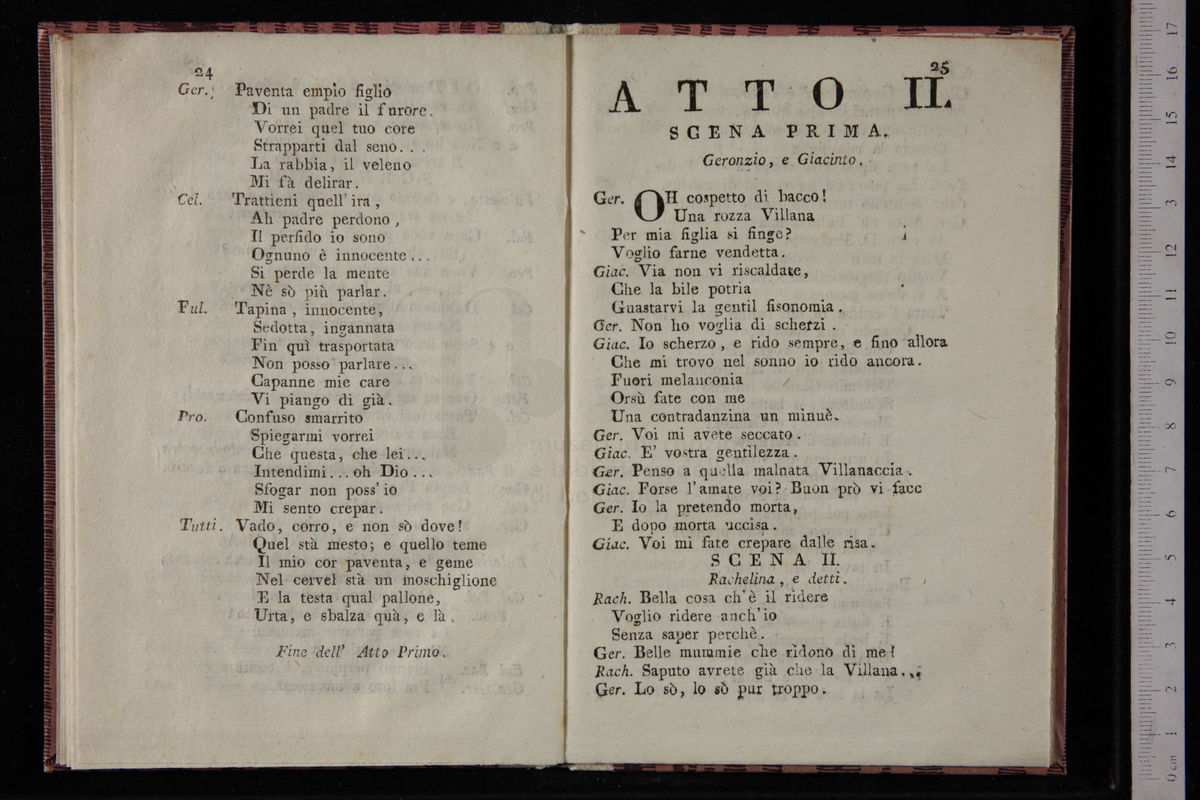 24
Ger. Paventa empio figlio
Di un padre il furore.
Vorrei quel tuo core
Strapparti dal seno. . .
La rabbia, il veleno
Mi fà delirar.
Cel. Trattieni quell' ira,
Ah padre perdono,
Il perfido io sono
Ognuno è innocente...
Si perde la mente
Nè sò più parlar.
Ful. Tapina, innocente,
Sedotta, ingannata
Fin quì trasportata
Non posso parlare...
Capanne mie care
Vi piango di già.
Pro. Confuso smarrito
Spiegarmi vorrei
Che questa, che lei...
Intendimi... oh Dio...
Sfogar non poss' io
Mi sento crepar.
Tutti. Vado, corro, e non sò dove!
Quel stà mesto; e quello teme
Il mio cor paventa, e geme
Nel cervel stà un moschiglione
E la testa qual pallone,
Urta, e sbalza quà, e là.
Fine dell' Atto Primo.
25
ATTO II.
SCENA PRIMA.
Geronzio, e Giacinto.
Ger. OH cospetto di bacco!
Una rozza Villana
Per mia figlia si finge?
Voglio farne vendetta.
Giac. Via non vi riscaldate,
Che la bile potria
Guastarvi la gentil fisonomia.
Ger. Non ho voglia di scherzi.
Giac. Io scherzo, e rido sempre, e fino allora
Che mi trovo nel sonno io rido ancora.
Fuori melanconia
Orsù fate con me
Una contradanzina un minuè.
Ger. Voi mi avete seccato.
Giac. E' vostra gentilezza.
Ger. Penso a quella malnata Villanaccia.
Giac. Forse l'amate voi? Buon prò vi facc
Ger. Io la pretendo morta,
E dopo morta uccisa.
Giac. Voi mi fate crepare dalle risa.
SCENA II.
Rachelina, e detti.
Rach. Bella cosa ch'è il ridere
Voglio ridere anch'io
Senza saper perchè.
Ger. Belle mummie che ridono di me!
Rach. Saputo avrete già che la Villana...
Ger. Lo sò, lo sò pur troppo.